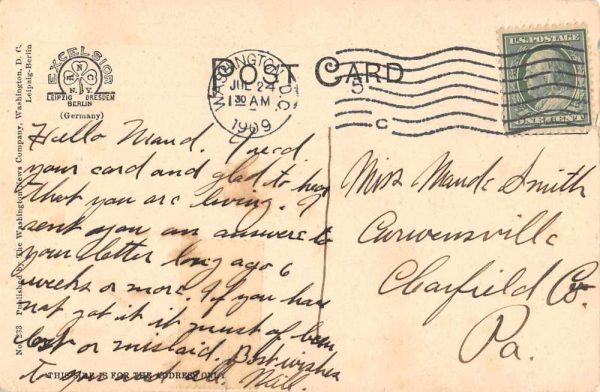 No. 1233 Published by The Washington News Company, Washington, D. C.
Leipzig-Berlin
EXCELSIOR
N. Y.
LEIPZIG DRESDEN
BERLIN
(Germany)
POST CARD
WASHINGTON, D.C.
JUL 24
1 30 AM
1909
5
C
U.S. POSTAGE
ONE CENT
Hello Maud. I recd
your card and glad to hear
that you are living. I
sent you an answer to
your letter long ago 6
weeks or more. If you have
not got it it must of been
lost or mislaid. Best wishes
to
Will.
THIS SIDE IS FOR THE ADDRESS ONLY
Miss Maude Smith
Curwensville
Clearfield Co.
Pa.